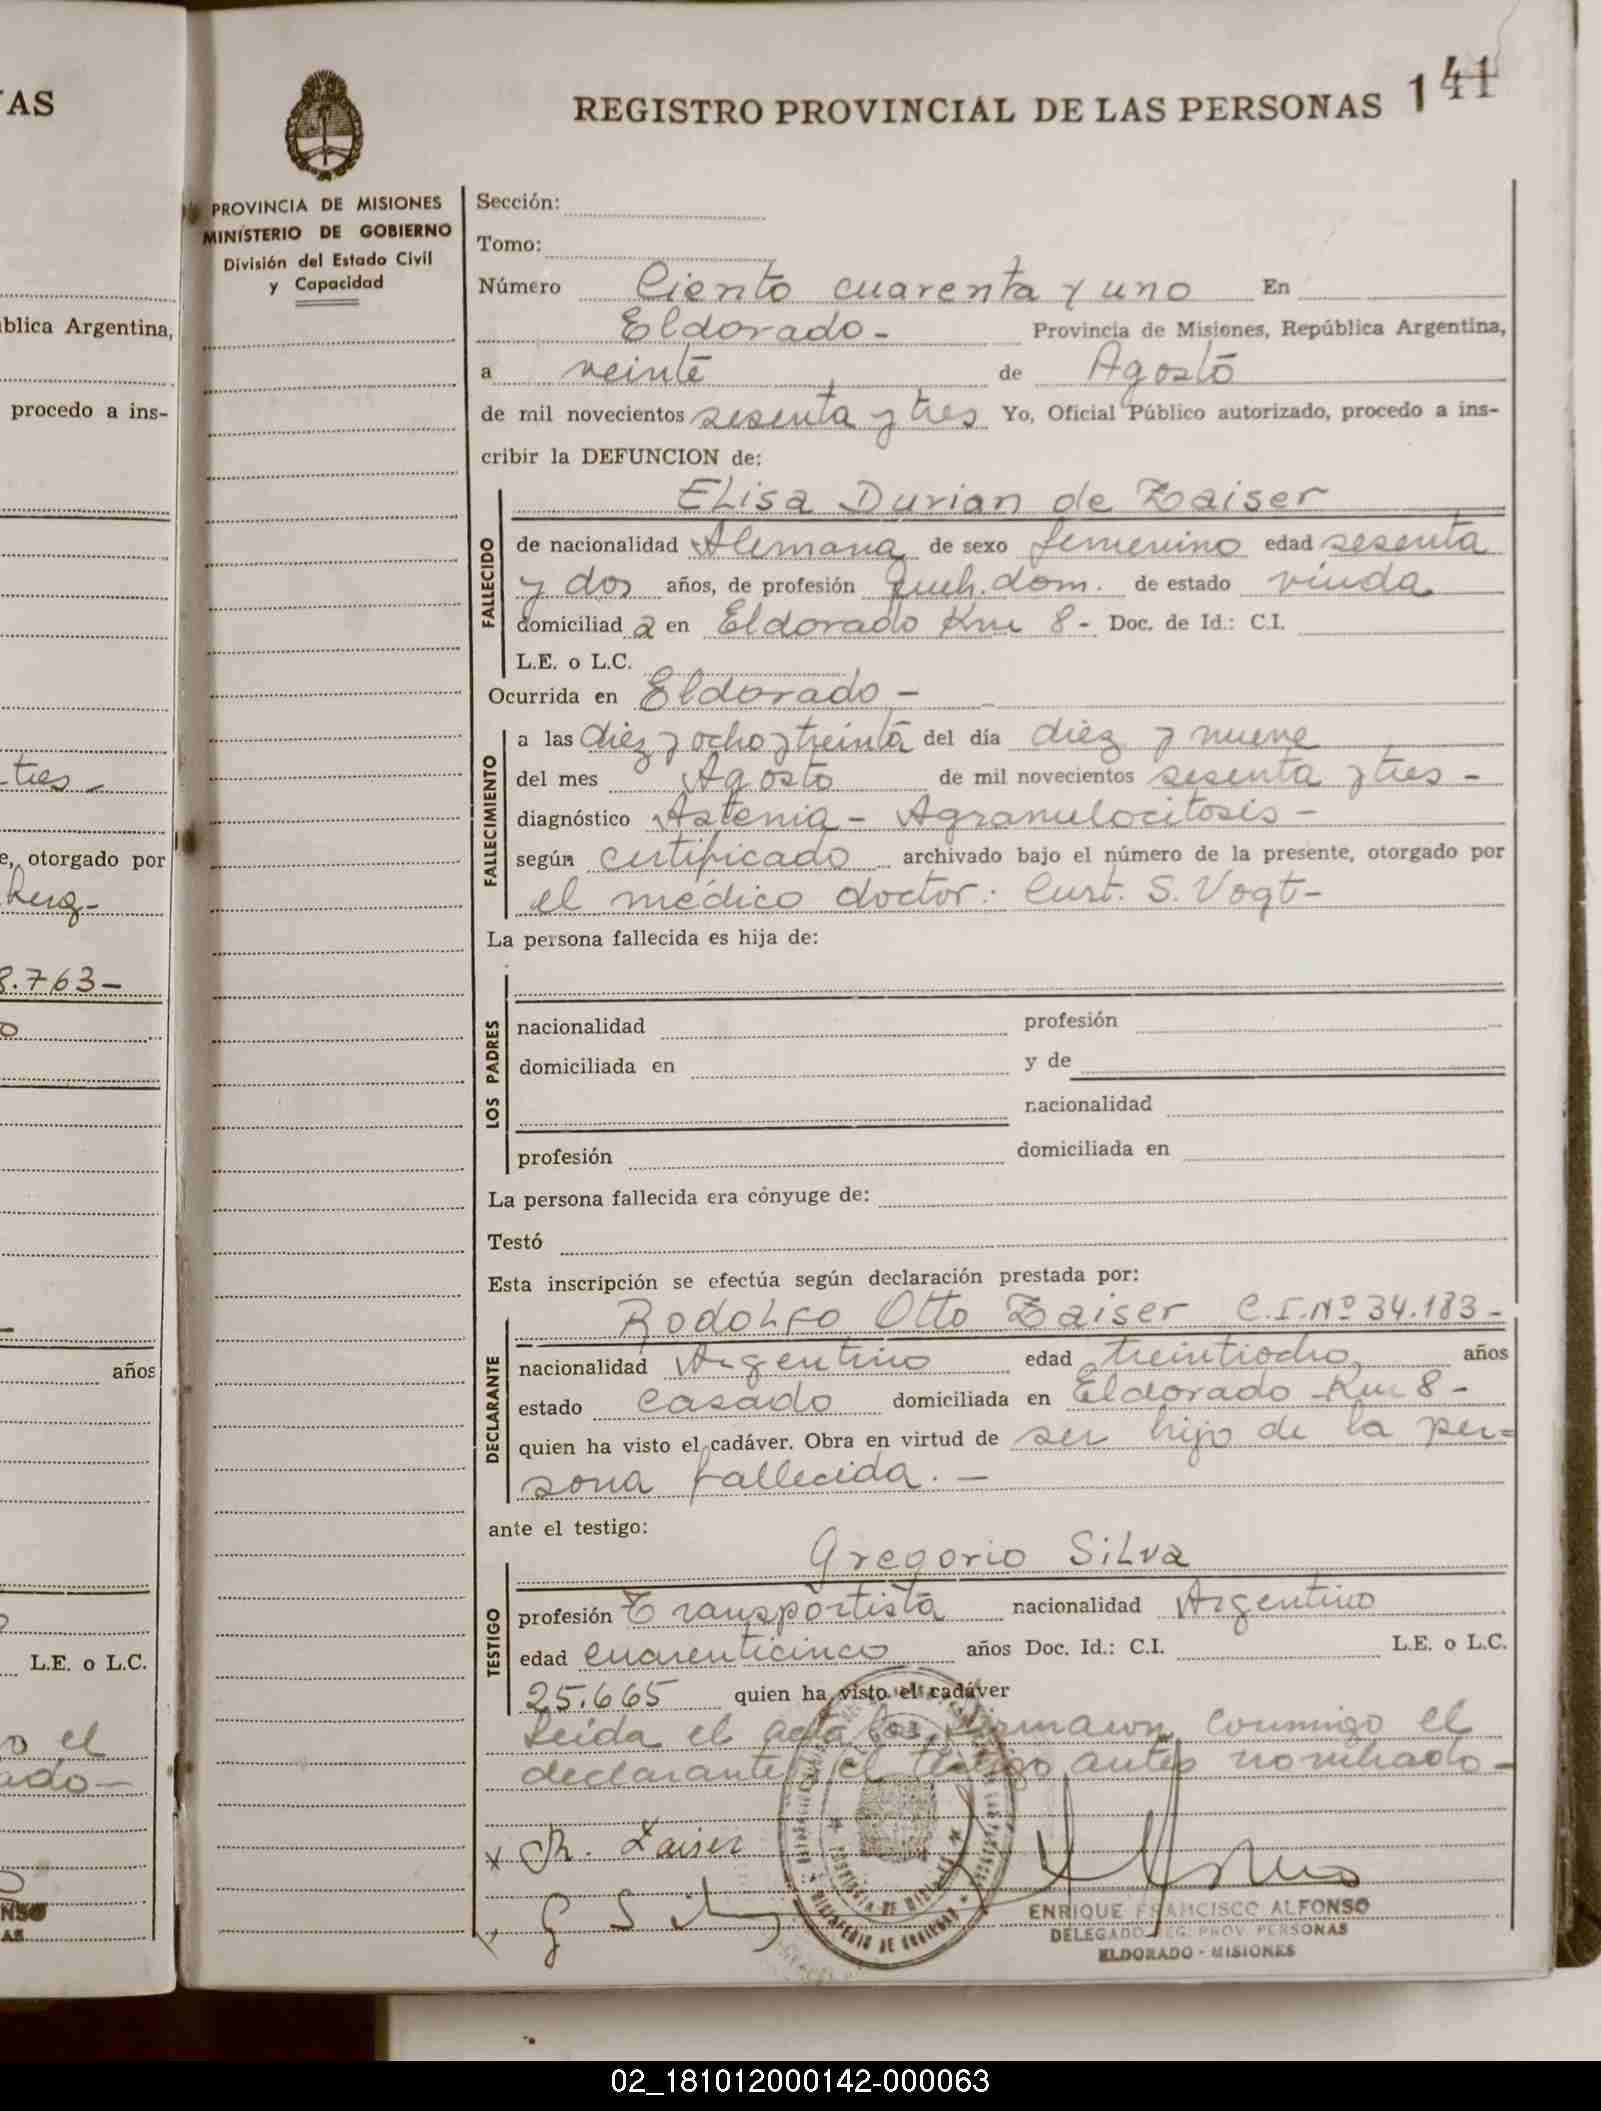 AS
blica Argentina,
procedo a ins-
tres -
e, otorgado por
berg-
8.763-
años
L.E. o L.C.
o el
ado-
REGISTRO PROVINCIAL DE LAS PERSONAS 141
PROVINCIA DE MISIONES
MINISTERIO DE GOBIERNO
División del Estado Civil
y Capacidad
Sección:
Tomo:
Número Ciento cuarenta y uno En
Eldorado- Provincia de Misiones, República Argentina,
a veinte de Agosto
de mil novecientos sesenta y tres Yo, Oficial Público autorizado, procedo a ins-
cribir la DEFUNCION de:
FALLECIDO
Elisa Durian de Zaiser
de nacionalidad Alemana de sexo femenino edad sesenta
y dos años, de profesión Queh. dom. de estado viuda
domiciliad a en Eldorado Km 8- Doc. de Id.: C.I.
L.E. o L.C.
Ocurrida en Eldorado-
FALLECIMIENTO
a las diez y ocho y treinta del día diez y nueve
del mes Agosto de mil novecientos sesenta y tres -
diagnóstico Astenia - Agranulocitosis -
según certificado archivado bajo el número de la presente, otorgado por
el médico doctor: Curt. S. Vogt-
La persona fallecida es hija de:
LOS PADRES
nacionalidad profesión
domiciliada en y de
nacionalidad
profesión domiciliada en
La persona fallecida era cónyuge de:
Testó
Esta inscripción se efectúa según declaración prestada por:
DECLARANTE
Rodolfo Otto Zaiser C.I.Nº 34.183-
nacionalidad Argentino edad treintiocho años
estado casado domiciliada en Eldorado Km 8-
quien ha visto el cadáver. Obra en virtud de ser hijo de la per=
sona fallecida. -
ante el testigo:
TESTIGO
Gregorio Silva
profesión Transportista nacionalidad Argentino
edad cuarenticinco años Doc. Id.: C.I. L.E. o L.C.
25.665 quien ha visto el cadáver
Leida el acta la firmaron conmigo el
declarante y el testigo antes nombrado-
x R. Zaiser
G Silva
ENRIQUE FRANCISCO ALFONSO
DELEGADO REG. PROV. PERSONAS
ELDORADO - MISIONES
02_181012000142-000063